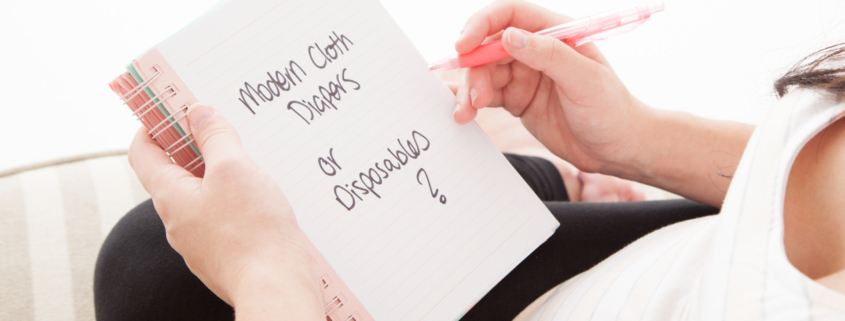 Modern Cloth
Diapers
or
Disposables
?